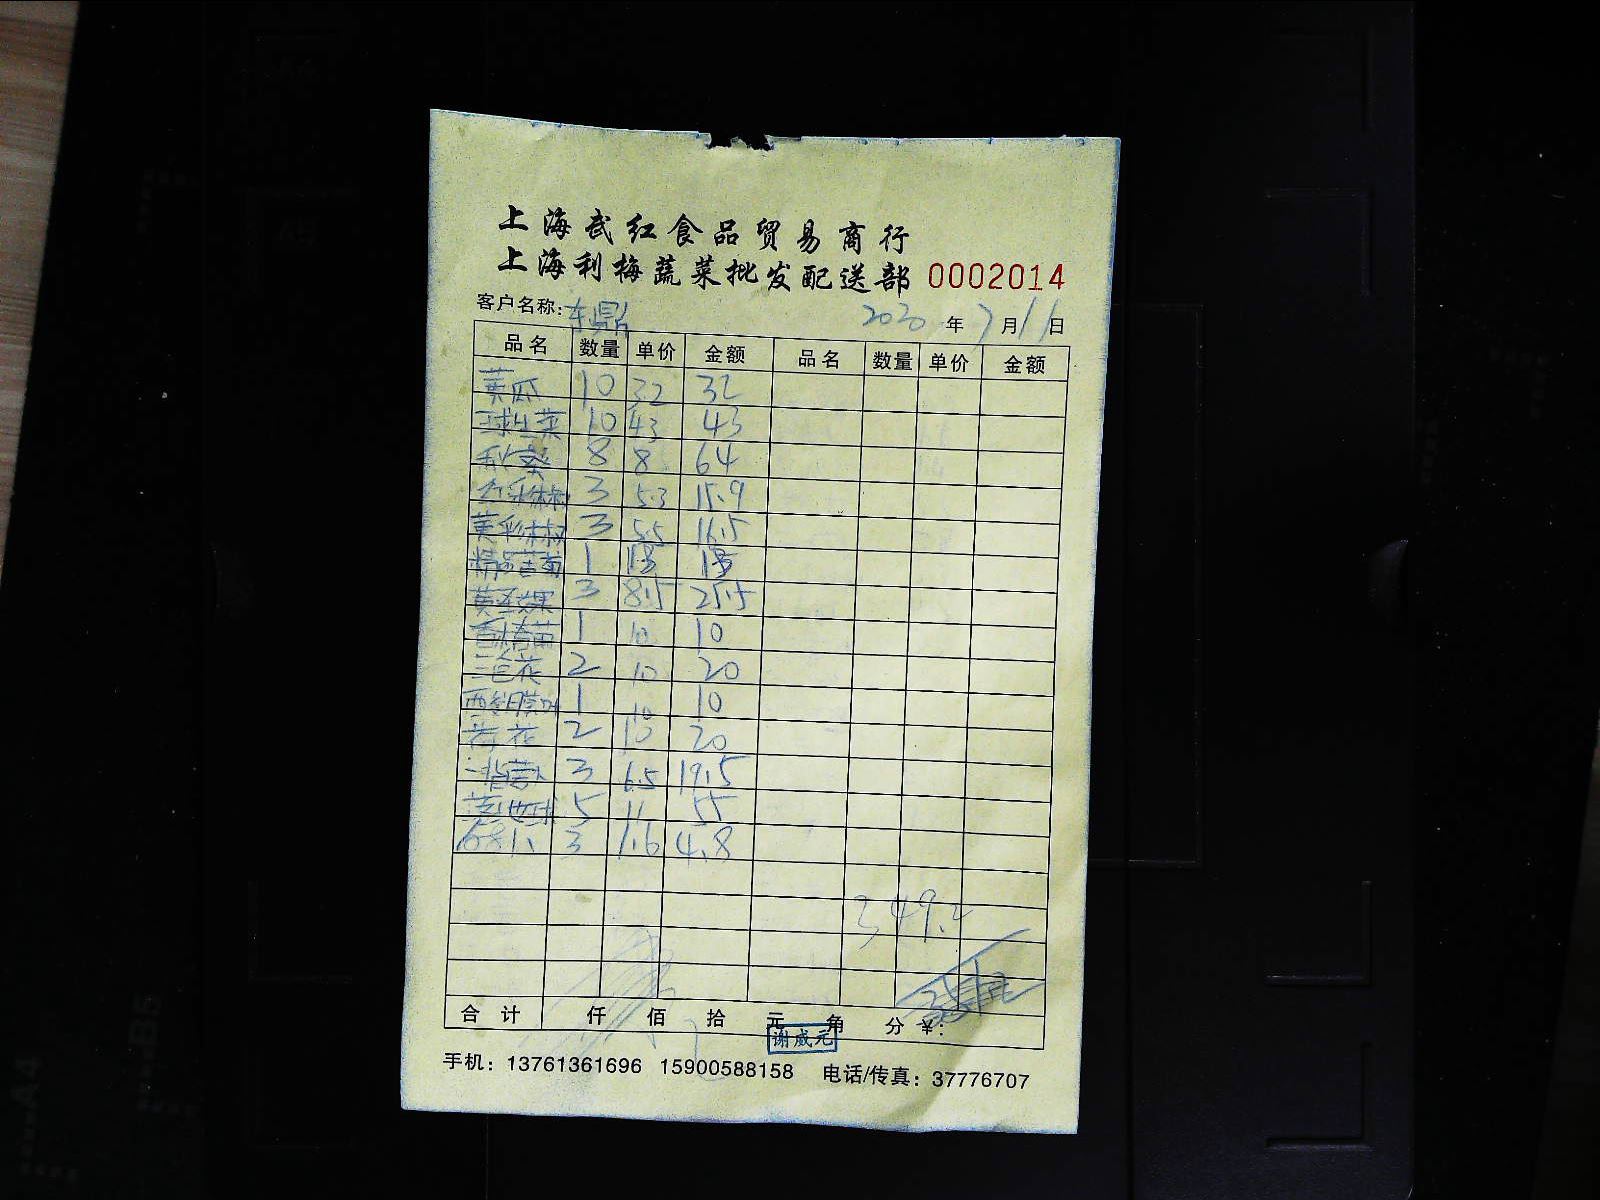 上海武红食品贸易商行
上海利梅蔬菜批发配送部 0002014
客户名称: 东鼎 2020 年 7 月 11 日
品名 数量 单价 金额 品名 数量 单价 金额
黄瓜 10 32 32
球生菜 10 43 43
秋葵 8 8 64
3 5.3 15.9
黄彩椒 3 5.5 16.5
精品苦菊 1 13 13
黄圣女果 3 8.5 25.5
1 10 10
三色花 2 10 20
1 10 10
荷花 2 10 20
3 6.5 19.5
5 11 55
3 1.6 4.8
349.2
合计 仟 佰 拾 元 角 分 ¥:
谢威元
手机: 13761361696 15900588158 电话/传真: 37776707